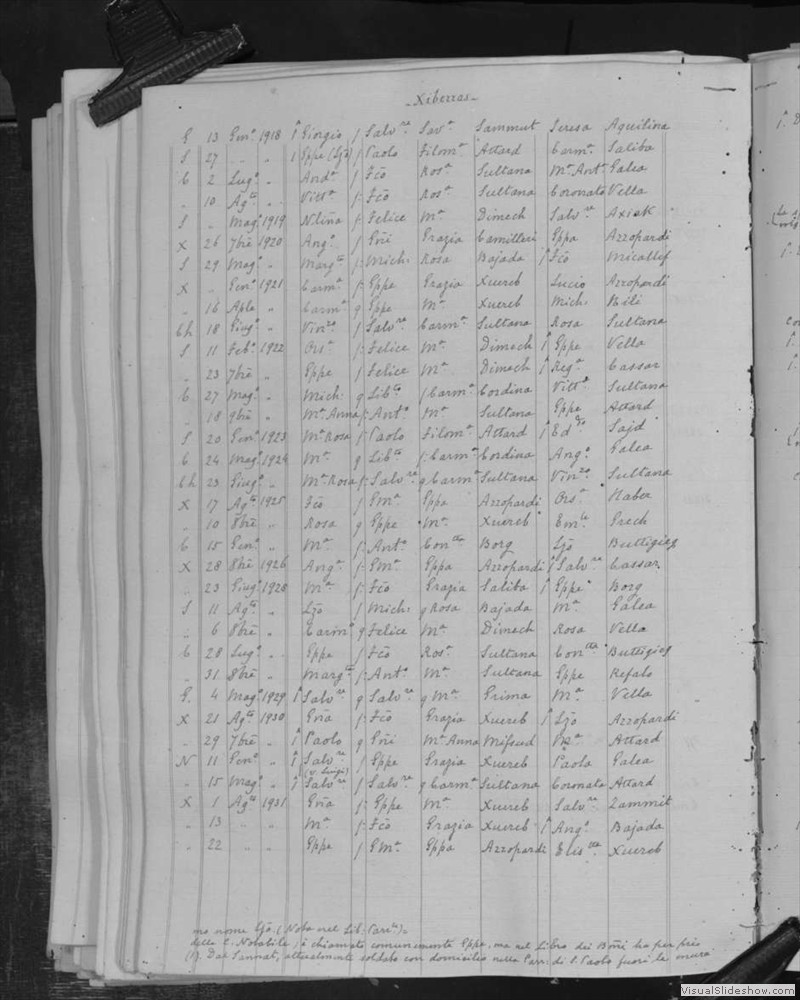 Xiberras
G 13 Gen° 1918 1 Giorgio f Salv.re Sav.a Sammut Teresa Aquilina
S 27 " " 1 Eppe (Ljò) f Paolo Filom.a Attard Carm.a Saliba
C 2 Lug° " And.a f Fcō Ros.a Sultana M.a Ant.a Galea
" 10 Ag.to " Vitt.a f Fcō Ros.a Sultana Coronata Vella
S " Mag° 1919 f Felice M.a Dimech Salv.re Axiak
X 26 7bre 1920 Ang.a f Gñi Grazia Camilleri Eppa Azzopardi
S 29 Mag° " Marg.ta f Mich. Rosa Bajada 1 Fcō Micallef
X " Gen° 1921 Carm.a f Eppe Grazia Xuereb Lucio Azzopardi
" 16 Aple " Carm.a g Eppe M.a Xuereb Mich.
Ch 18 Giug° " Vin.za f Salv.re Carm.a Sultana Rosa Sultana
S 11 Feb° 1922 Ors.a f Felice M.a Dimech 1 Eppe Vella
" 23 7bre " Eppe f Felice M.a Dimech 1 Reg.a Cassar
C 27 Mag° " Mich. g Lib.to f Carm.a Cordina Vitt.a Sultana
" 18 9bre " M.a Anna f Ant.o M.a Sultana Eppe Attard
S 20 Gen° 1923 M.a Rosa f Paolo Filom.a Attard 1 Ed.do Sajd
C 24 Mag° 1924 M.a g Lib.to f Carm.a Cordina Ang.a Galea
Ch 23 Giug° " M.a Rosa f Salv.re g Carm.a Sultana Vin.za Sultana
X 17 Ag.to 1925 Fcō f Em.a Eppa Azzopardi Ors.a Haber
" 10 8bre " Rosa g Eppe M.a Xuereb Em.le Grech
C 15 Gen° " M.a f Ant.o Con.tta Borg Ljò Buttigieg
X 28 8bre 1926 Ang.a f Em.a Eppa Azzopardi 1 Salv.re Cassar
" 23 Giug° 1928 M.a f Fcō Grazia Saliba 1 Eppe Borg
S 11 Ag.to " Ljò f Mich. g Rosa Bajada M.a Galea
" 6 8bre " Carm.a g Felice M.a Dimech Rosa Vella
C 28 Lug° " Eppe f Fcō Ros.a Sultana Con.tta Buttigieg
" 31 8bre " Marg.ta f Ant.o M.a Sultana Eppe Refalo
G. 4 Mag° 1929 1 Salv.re g Salv.re g M.a Grima M.a Vella
X 21 Ag.to 1930 Gña f Fcō Grazia Xuereb 1 Ljò Azzopardi
" 29 7bre " 1 Paolo g Gñi M.a Anna Mifsud M.a Attard
N 11 Gen° " 1 Salv.re f Eppe Grazia Xuereb Paola Galea
(o Luigi)
" 15 Mag° " 1 Salv.re f Salv.re g Carm.a Sultana Coronata Attard
X 1 Ag.to 1931 Gña f Eppe M.a Xuereb Salv.re Zammit
" 13 " " M.a f Fcō Grazia Xuereb 1 Ang.a Bajada
" 22 " Eppe f Em.a Eppa Azzopardi Elis.tta Xuereb
mo nome Ljò. (Nota nel Lib. Parr.le)
della C. Notabile, è chiamato comunemente Eppe, ma nel Libro dei Bmi ha per pri
(1). Dal Sannat, attualmente soldato con domicilio nella Parr. di S. Paolo fuori le mura
VisualSlideshow.com